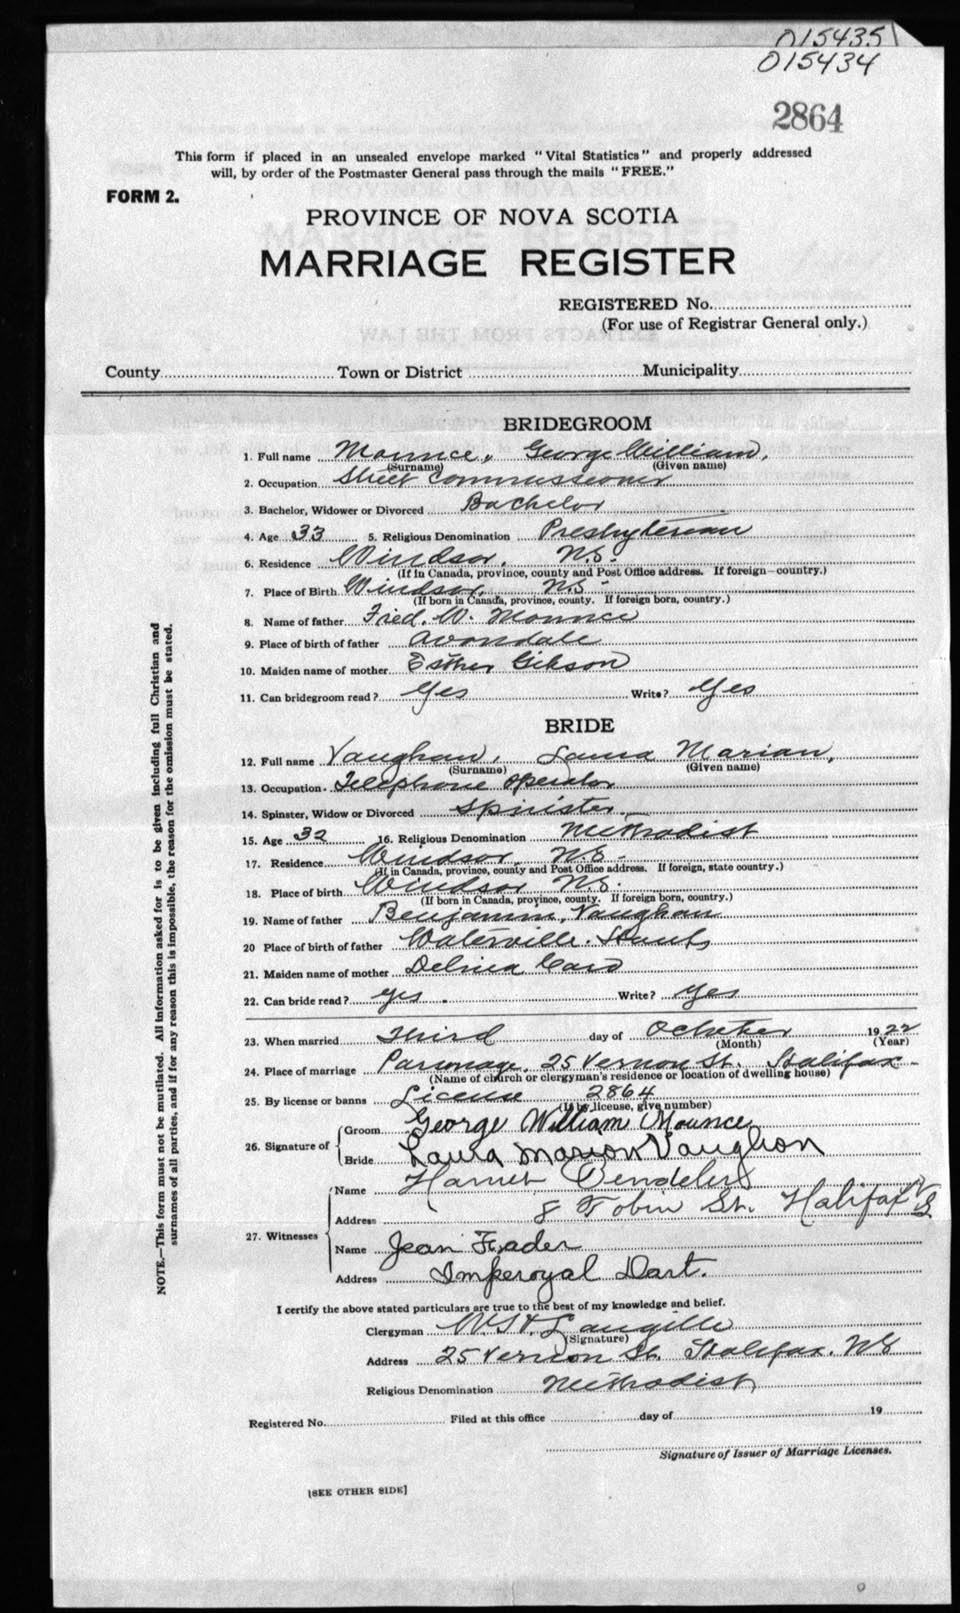 015435
015434
2864
This form if placed in an unsealed envelope marked "Vital Statistics" and properly addressed
will, by order of the Postmaster General pass through the mails "FREE."
FORM 2.
PROVINCE OF NOVA SCOTIA
MARRIAGE REGISTER
REGISTERED No.
(For use of Registrar General only.)
EXTRACTS FROM THE LAW
County Town or District Municipality
BRIDEGROOM
1. Full name Mounce, George William,
(Surname) (Given name)
2. Occupation Street Commissioner
3. Bachelor, Widower or Divorced Bachelor
4. Age 33 5. Religious Denomination Presbyterian
6. Residence Windsor, N.S.
(If in Canada, province, county and Post Office address. If foreign—country.)
7. Place of Birth Windsor, N.S.
(If born in Canada, province, county. If foreign born, country.)
8. Name of father Fred. W. Mounce
9. Place of birth of father Avondale
10. Maiden name of mother Esther Gibson
11. Can bridegroom read? Yes Write? Yes
BRIDE
12. Full name Vaughan, Laura Marian,
(Surname) (Given name)
13. Occupation Telephone operator
14. Spinster, Widow or Divorced Spinister
15. Age 32 16. Religious Denomination Methodist
17. Residence Windsor, N.S.
(If in Canada, province, county and Post Office address. If foreign, state country.)
18. Place of birth Windsor N.S.
(If born in Canada, province, county. If foreign born, country.)
19. Name of father Benjamin, Vaughan
20 Place of birth of father Waterville. Hants
21. Maiden name of mother
22. Can bride read? yes. Write? Yes
23. When married Third day of October 1922
(Month) (Year)
24. Place of marriage Parsonage, 25 Vernon St. Halifax
(Name of church or clergyman's residence or location of dwelling house)
25. By license or banns License 2864
(If by license, give number)
26. Signature of
Groom George William Mounce
Bride Laura Marion Vaughan
27. Witnesses
Name
Address 8 Tobin St. Halifax NS
Name Jean Frader
Address Imperoyal Dart.
I certify the above stated particulars are true to the best of my knowledge and belief.
Clergyman Langille
(Signature)
Address 25 Vernon St. Halifax. NS
Religious Denomination Methodist
Registered No. Filed at this office day of 19
Signature of Issuer of Marriage Licenses.
[SEE OTHER SIDE]
NOTE.—This form must not be mutilated. All information asked for is to be given including full Christian and
surnames of all parties, and if for any reason this is impossible, the reason for the omission must be stated.